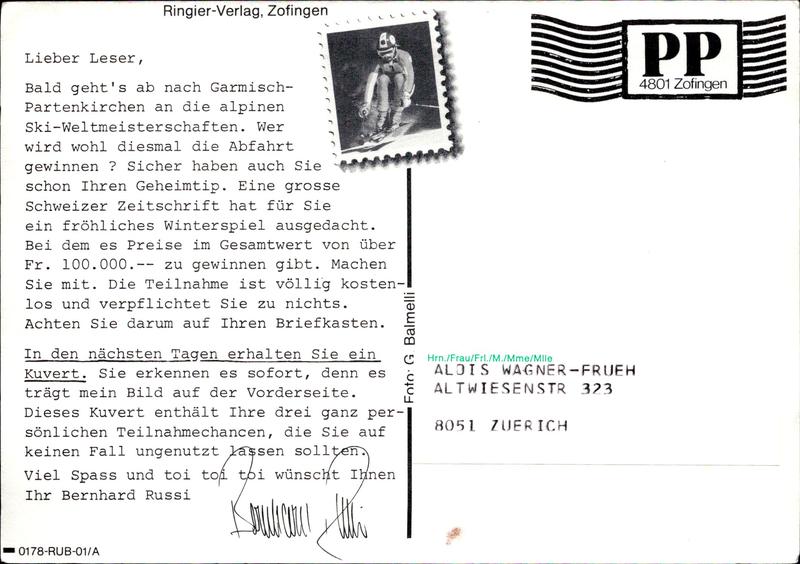 Ringier-Verlag, Zofingen
PP
4801 Zofingen
Lieber Leser,
Bald geht's ab nach Garmisch-
Partenkirchen an die alpinen
Ski-Weltmeisterschaften. Wer
wird wohl diesmal die Abfahrt
gewinnen ? Sicher haben auch Sie
schon Ihren Geheimtip. Eine grosse
Schweizer Zeitschrift hat für Sie
ein fröhliches Winterspiel ausgedacht.
Bei dem es Preise im Gesamtwert von über
Fr. 100.000.-- zu gewinnen gibt. Machen
Sie mit. Die Teilnahme ist völlig kosten-
los und verpflichtet Sie zu nichts.
Achten Sie darum auf Ihren Briefkasten.
In den nächsten Tagen erhalten Sie ein
Kuvert. Sie erkennen es sofort, denn es
trägt mein Bild auf der Vorderseite.
Dieses Kuvert enthält Ihre drei ganz per-
sönlichen Teilnahmechancen, die Sie auf
keinen Fall ungenutzt lassen sollten.
Viel Spass und toi toi toi wünscht Ihnen
Ihr Bernhard Russi
Bernhard Russi
0178-RUB-01/A
Foto: G. Balmelli
Hrn./Frau/Frl./M./Mme/Mlle
ALOIS WAGNER-FRUEH
ALTWIESENSTR 323
8051 ZUERICH